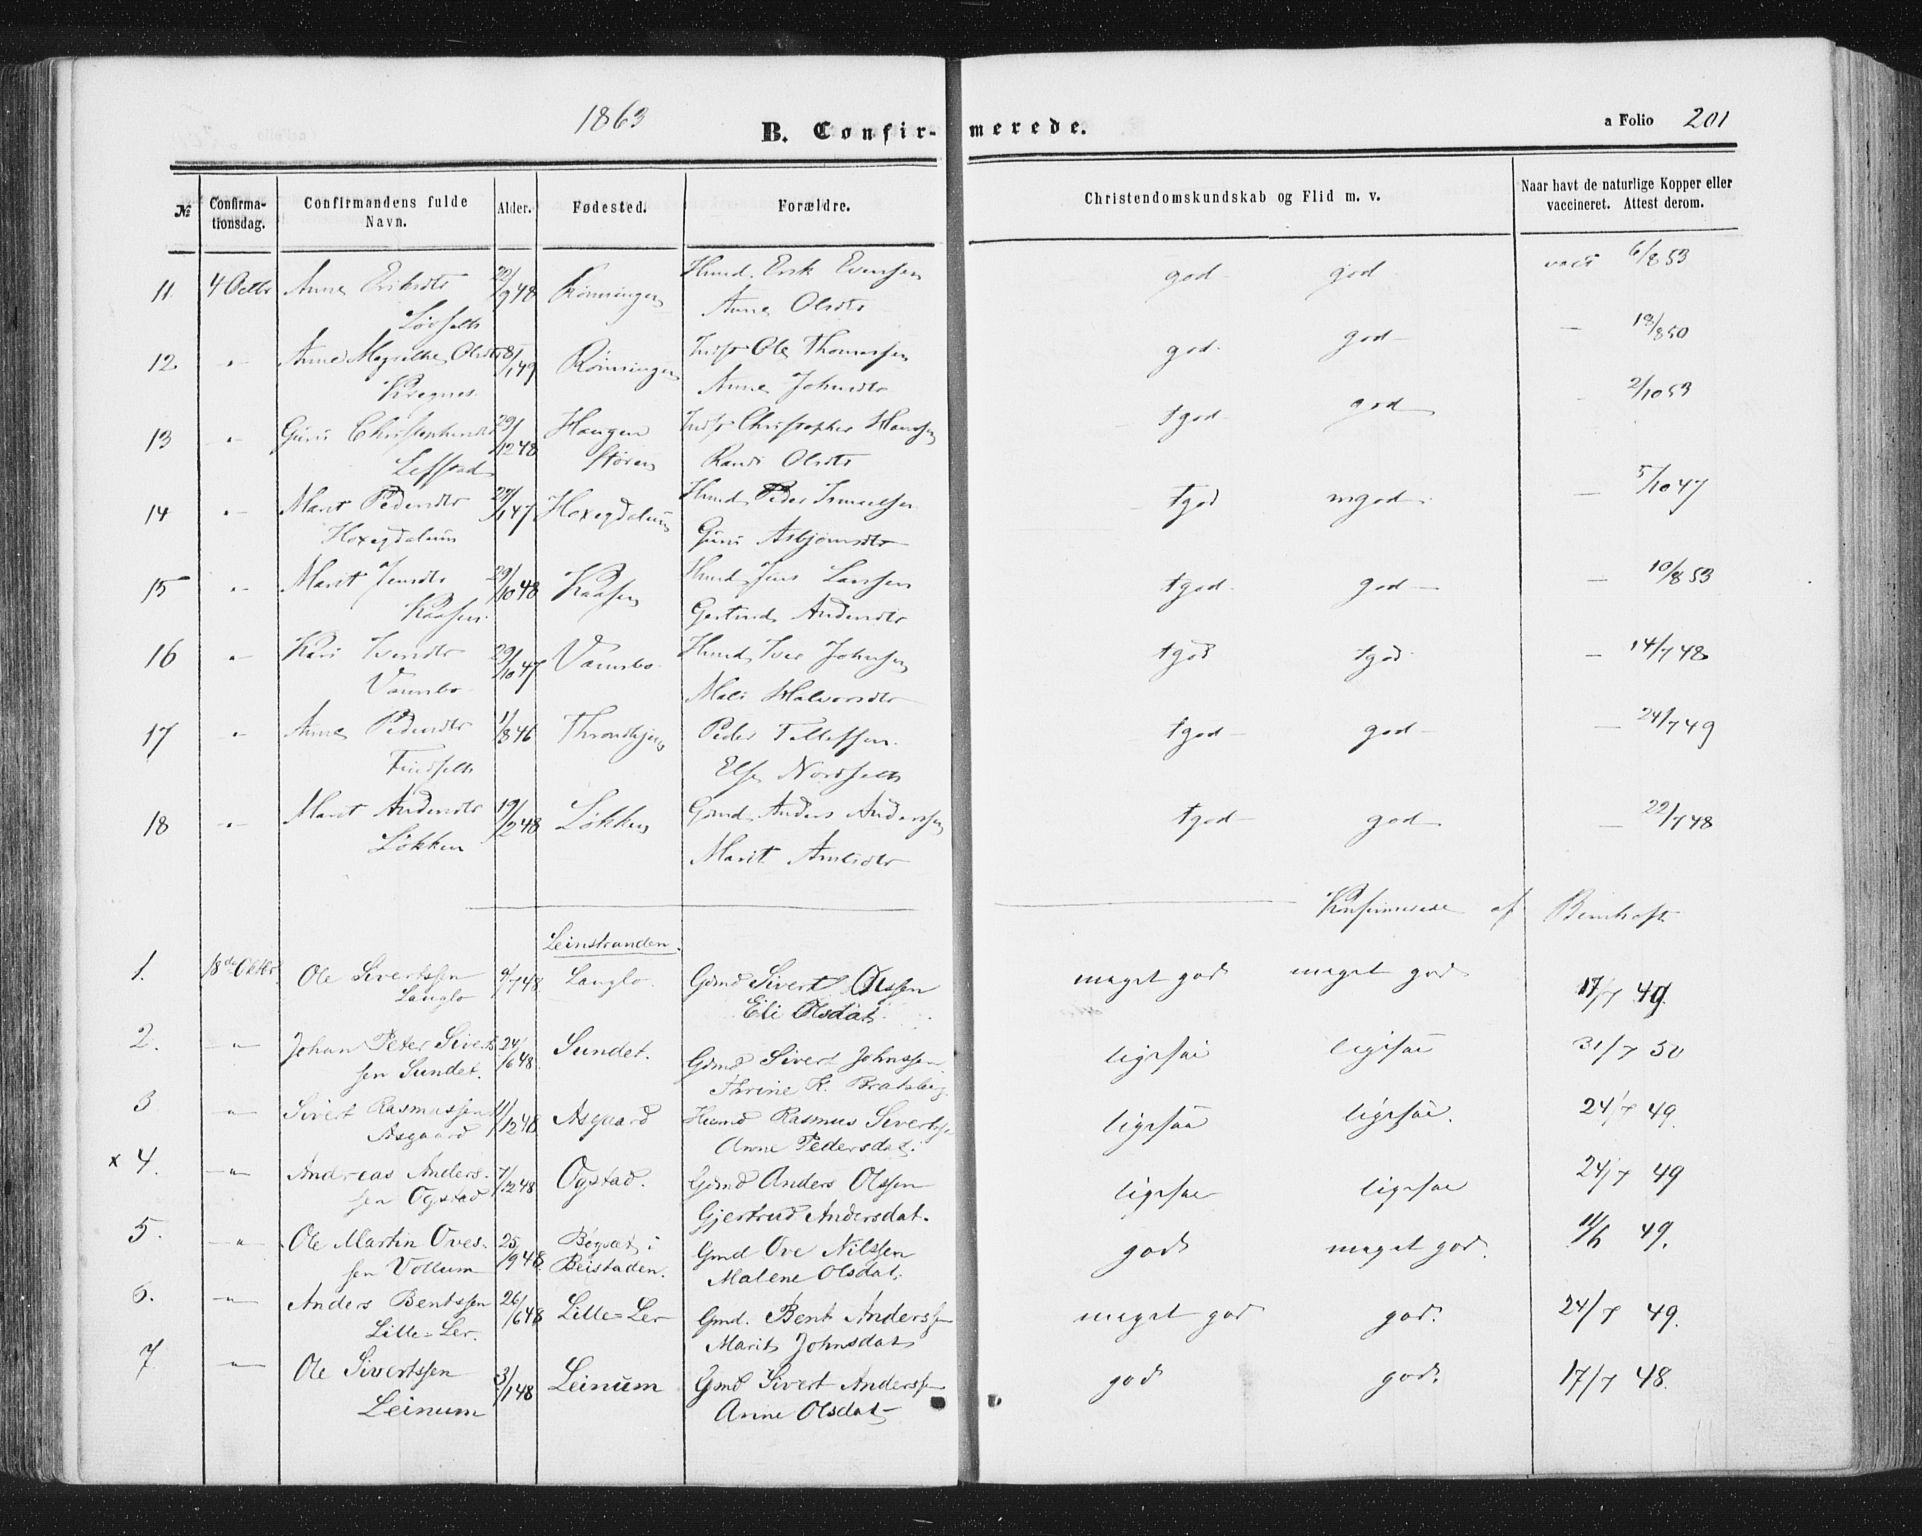 1863 B. Confirmerede. a Folio 201
№ Confirmationsdag. Confirmandens fulde Navn. Alder. Fødested. Forældre. Christendomskundskab og Flid m. v. Naar havt de naturlige Kopper eller vaccineret. Attest derom.
11. 4 Octbr Anne Eriksdtr 22/9 48 Rønningen Huusmd. Erik Evensen god god vacc 6/8 53
Anne Olsdtr
12. " Anne Olsdtr 8/1 49 Rønningen Indst Ole Thomassen god god — 18/8 50
Kregnes Anne Johnsdtr
13 " Guri Christophersdtr 29/12 48 Haugen Indst Christopher Hansen tgod god — 2/10 53
Lefstad Støren Randi Olsdtr
14 " Marit Pedersdtr 1 47 Hoxegdalum Huusmd Peder tgod mgod — 5/10 47
Hoxegdalum Guri Asbjørnsdtr
15 " Marit Jensdtr 29/10 48 Kaasen Huusmd Jens Larssen tgod god — 10/8 53
Kaasen Gertrud Andersdtr
16 " Kari Iversdtr 29/10 47 Vamsbo Huusmd Iver Johnsen tgod tgod — 14/7 48
Vamsbo Mali Halvorsdtr
17 " Anne Pedersdtr 1/8 46 Throndhjem Peder Tellefsen tgod god — 24/7 49
Else
18 " Marit Andersdtr 19/2 48 Løkken Gmd. Anders Anderssen tgod god — 22/7 48
Løkken Marit
Konfirmerede af
Leinstranden.
1. 18de Oktbr. Ole Sivertssen 9/7 48 Langlo. Gmd Sivert Olssen meget god meget god 17/7 49
Langlo Eli Olsdat.
2. " Johan Peter Siverts 24/6 48. Sundet. Gmd Sivert Johnssen ligesaa ligesaa 31/7 50
sen Sundet. Thrine K. Bratsberg
3 " Sivert Rasmussen 11/12 48 Asgaard Huusmd Rasmus Sivertsen ligesaa ligesaa. 24/7 49.
Asgaard Anne Pedersdat.
x 4. " Andreas Anders- 7/12 48 Ogstad. Gmd Anders Olssen ligesaa ligesaa 24/7 49
sen Ogstad Gjertrud Andersdat.
5. " Ole Martin Oves- 25/9 48. i Gmd Ove Nilssen god meget god. 11/6 49.
sen Vollum Beistaden. Malene Olsdat.
6. " Anders Bentssen 26/6 48 Lille-Ler Gmd. Bent Anderssen meget god god. 24/7 49.
Lille-Ler. Marit Johnsdat
7 " Ole Sivertssen 3/1 48 Leinum Gmd Sivert Anderssen god god. 17/7 48.
Leinum Anne Olsdat